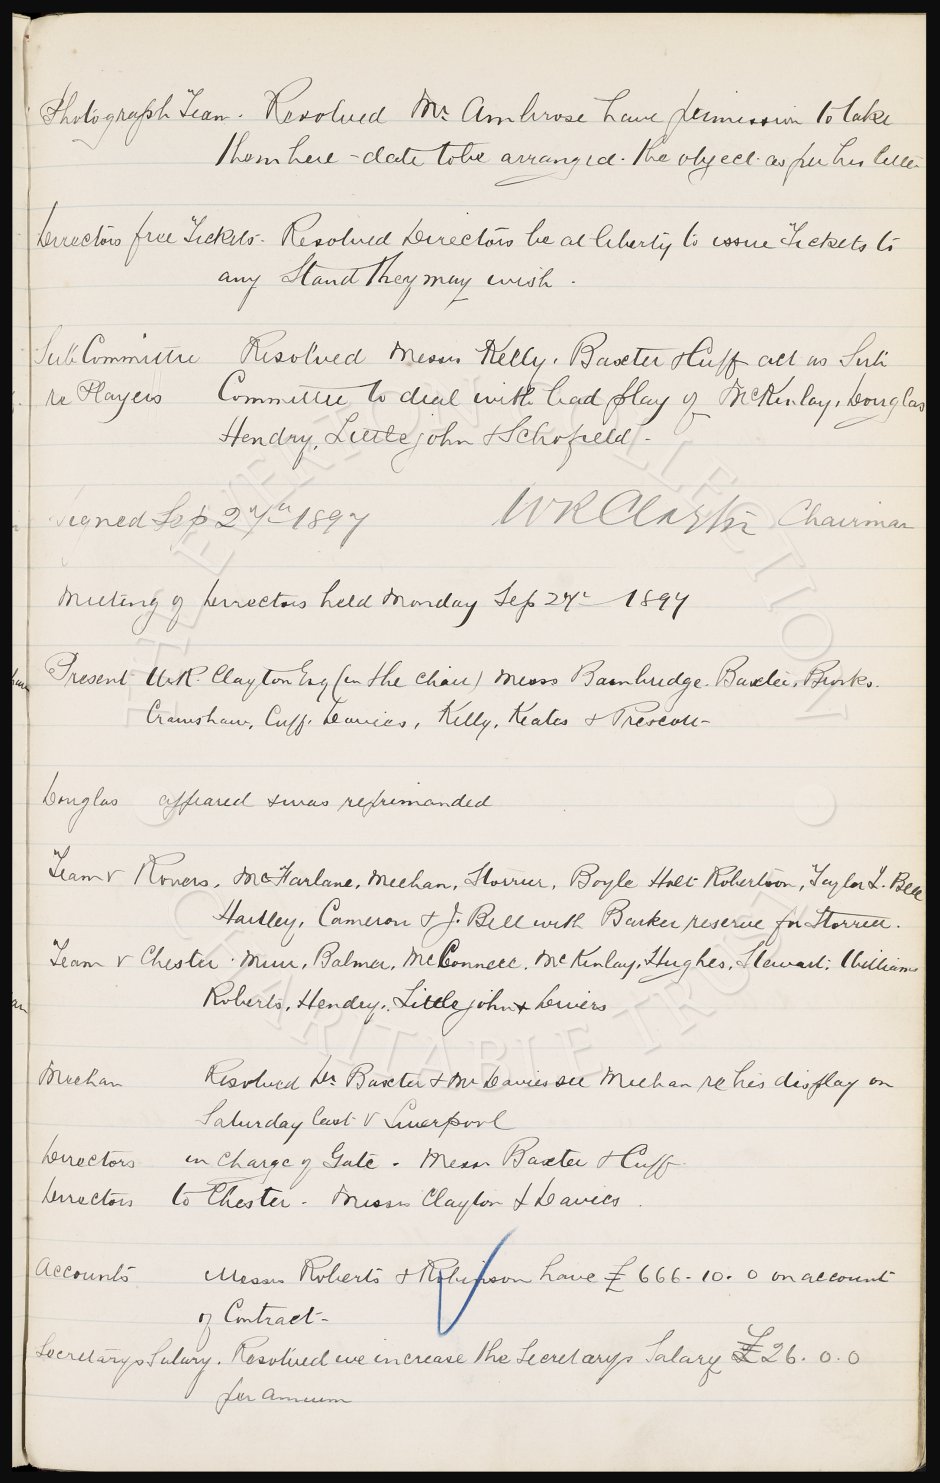 Photograph Team. Resolved Mr. Ambrose have permission to take
them here - date to be arranged. the object as per his letter
Directors free Tickets. Resolved Directors be at liberty to issue Tickets to
any Stand they may wish.
Sub Committee Resolved Messrs Kelly, Baxter & Cuff act as Sub
re Players Committee to deal with bad play of McKinlay, Douglas
Hendry, Littlejohn & Schofield -
Signed Sep 27th 1897 WR Clayton Chairman
Meeting of Directors held Monday Sep 27th 1897
Present W.R. Clayton Esq (in the chair) Messrs Bainbridge, Baxter, Brooks.
Crawshaw, Cuff, Davies, Kelly, Keates & Prescott -
Douglas appeared & was reprimanded
Team v Rovers, McFarlane, Meehan, Storrier, Boyle Holt Robertson, Taylor L. Bell
Hartley, Cameron & J. Bell with Barker reserve for Storrier.
Team v Chester. Muir, Balmer, McConnell, McKinlay, Hughes, Stewart, Williams
Roberts, Hendry, Littlejohn & Divers
Meehan Resolved Dr. Baxter & Mr Davies see Meehan re his display on
Saturday last v Liverpool
Directors in charge of Gate. Messrs Baxter & Cuff
Directors to Chester. Messrs Clayton & Davies.
Accounts Messrs Roberts & Robinson have £666-10-0 on account
of Contract -
Secretarys Salary. Resolved we increase the Secretarys Salary £26.0.0
per annum
THE EVERTON COLLECTION
CHARITABLE TRUST